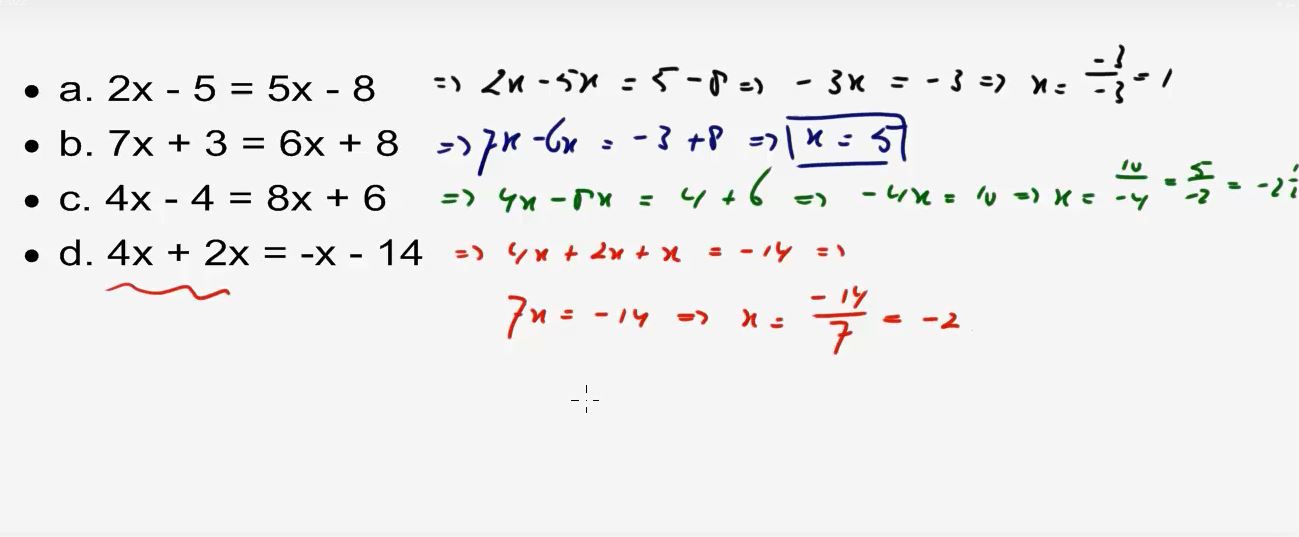 • a. 2x - 5 = 5x - 8 => 2x - 5x = 5 - 8 => - 3x = - 3 => x = -3/-3 = 1
• b. 7x + 3 = 6x + 8 => 7x - 6x = - 3 + 8 => x = 5
• c. 4x - 4 = 8x + 6 => 4x - 8x = 4 + 6 => - 4x = 10 => x = 10/-4 = 5/-2 = -2
• d. 4x + 2x = -x - 14 => 4x + 2x + x = - 14 =>
7x = - 14 => x = -14/7 = - 2